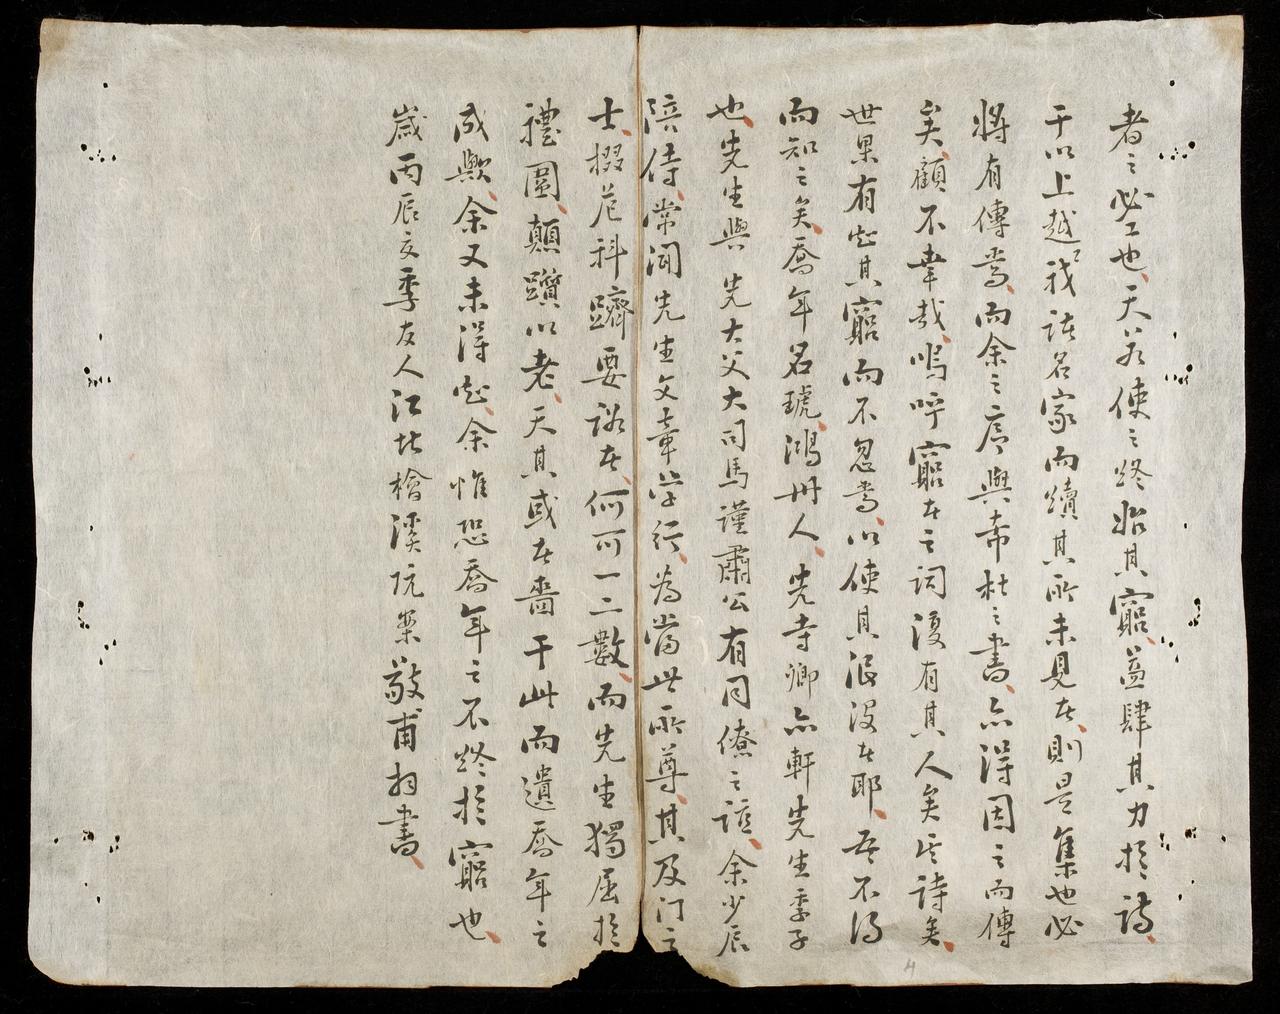 者之必工也天若使之終始其窮益肆其力於詩
于以上越我諸名家而續其所未見者則是集也必
將有傳焉而余之序與帝杜之書亦得因之而傳
矣顧不幸哉嗚呼窮者之詞復有其人矣是詩矣
世果有知其窮而不忍焉以使其泯沒者耶吾不得
而知之矣喬年名琥鴻州人先寺卿亦軒先生季子
也先生與先大父大司馬謹肅公有同僚之誼余少辰
陪侍常聞先生文章學行為當世所尊其及门之
士掇危科躋要路者何可一二數而先生獨屈於
禮圍顛躓以老天其或者嗇于此而遺喬年之
成歟余又未得知余惟恐喬年之不終於窮也
歲丙辰文季友人江北檜溪阮案敬甫拜書